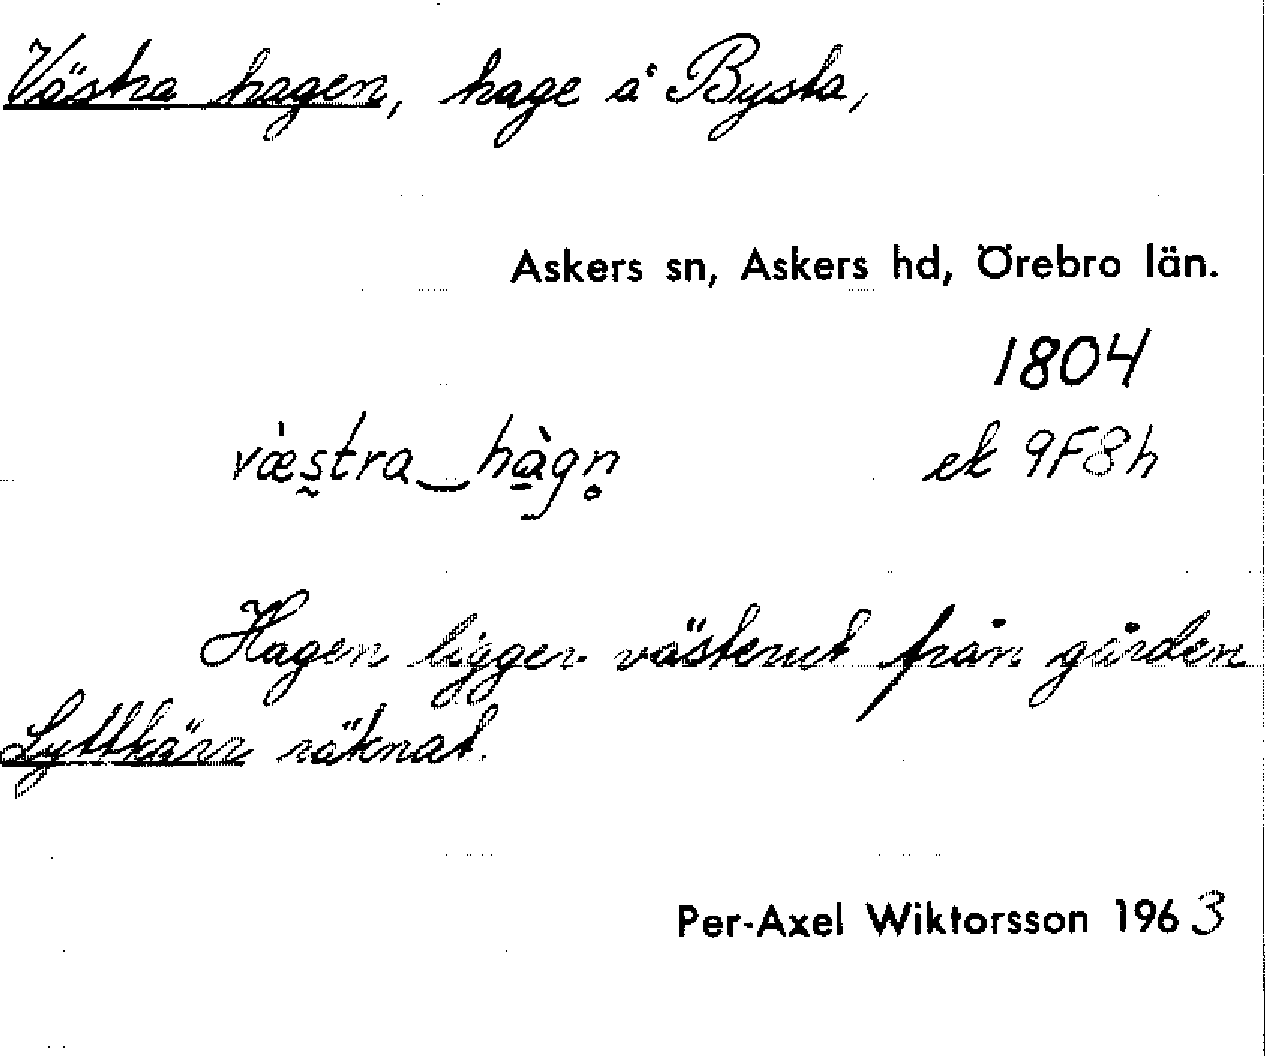 Västra hagen, hage å Bysta,
Askers sn, Askers hd, Örebro län.
1804
væstra‿hàgn̥ ek 9F8h
Hagen ligger västerut från gården
Lyttkärr räknat.
Per-Axel Wiktorsson 1963